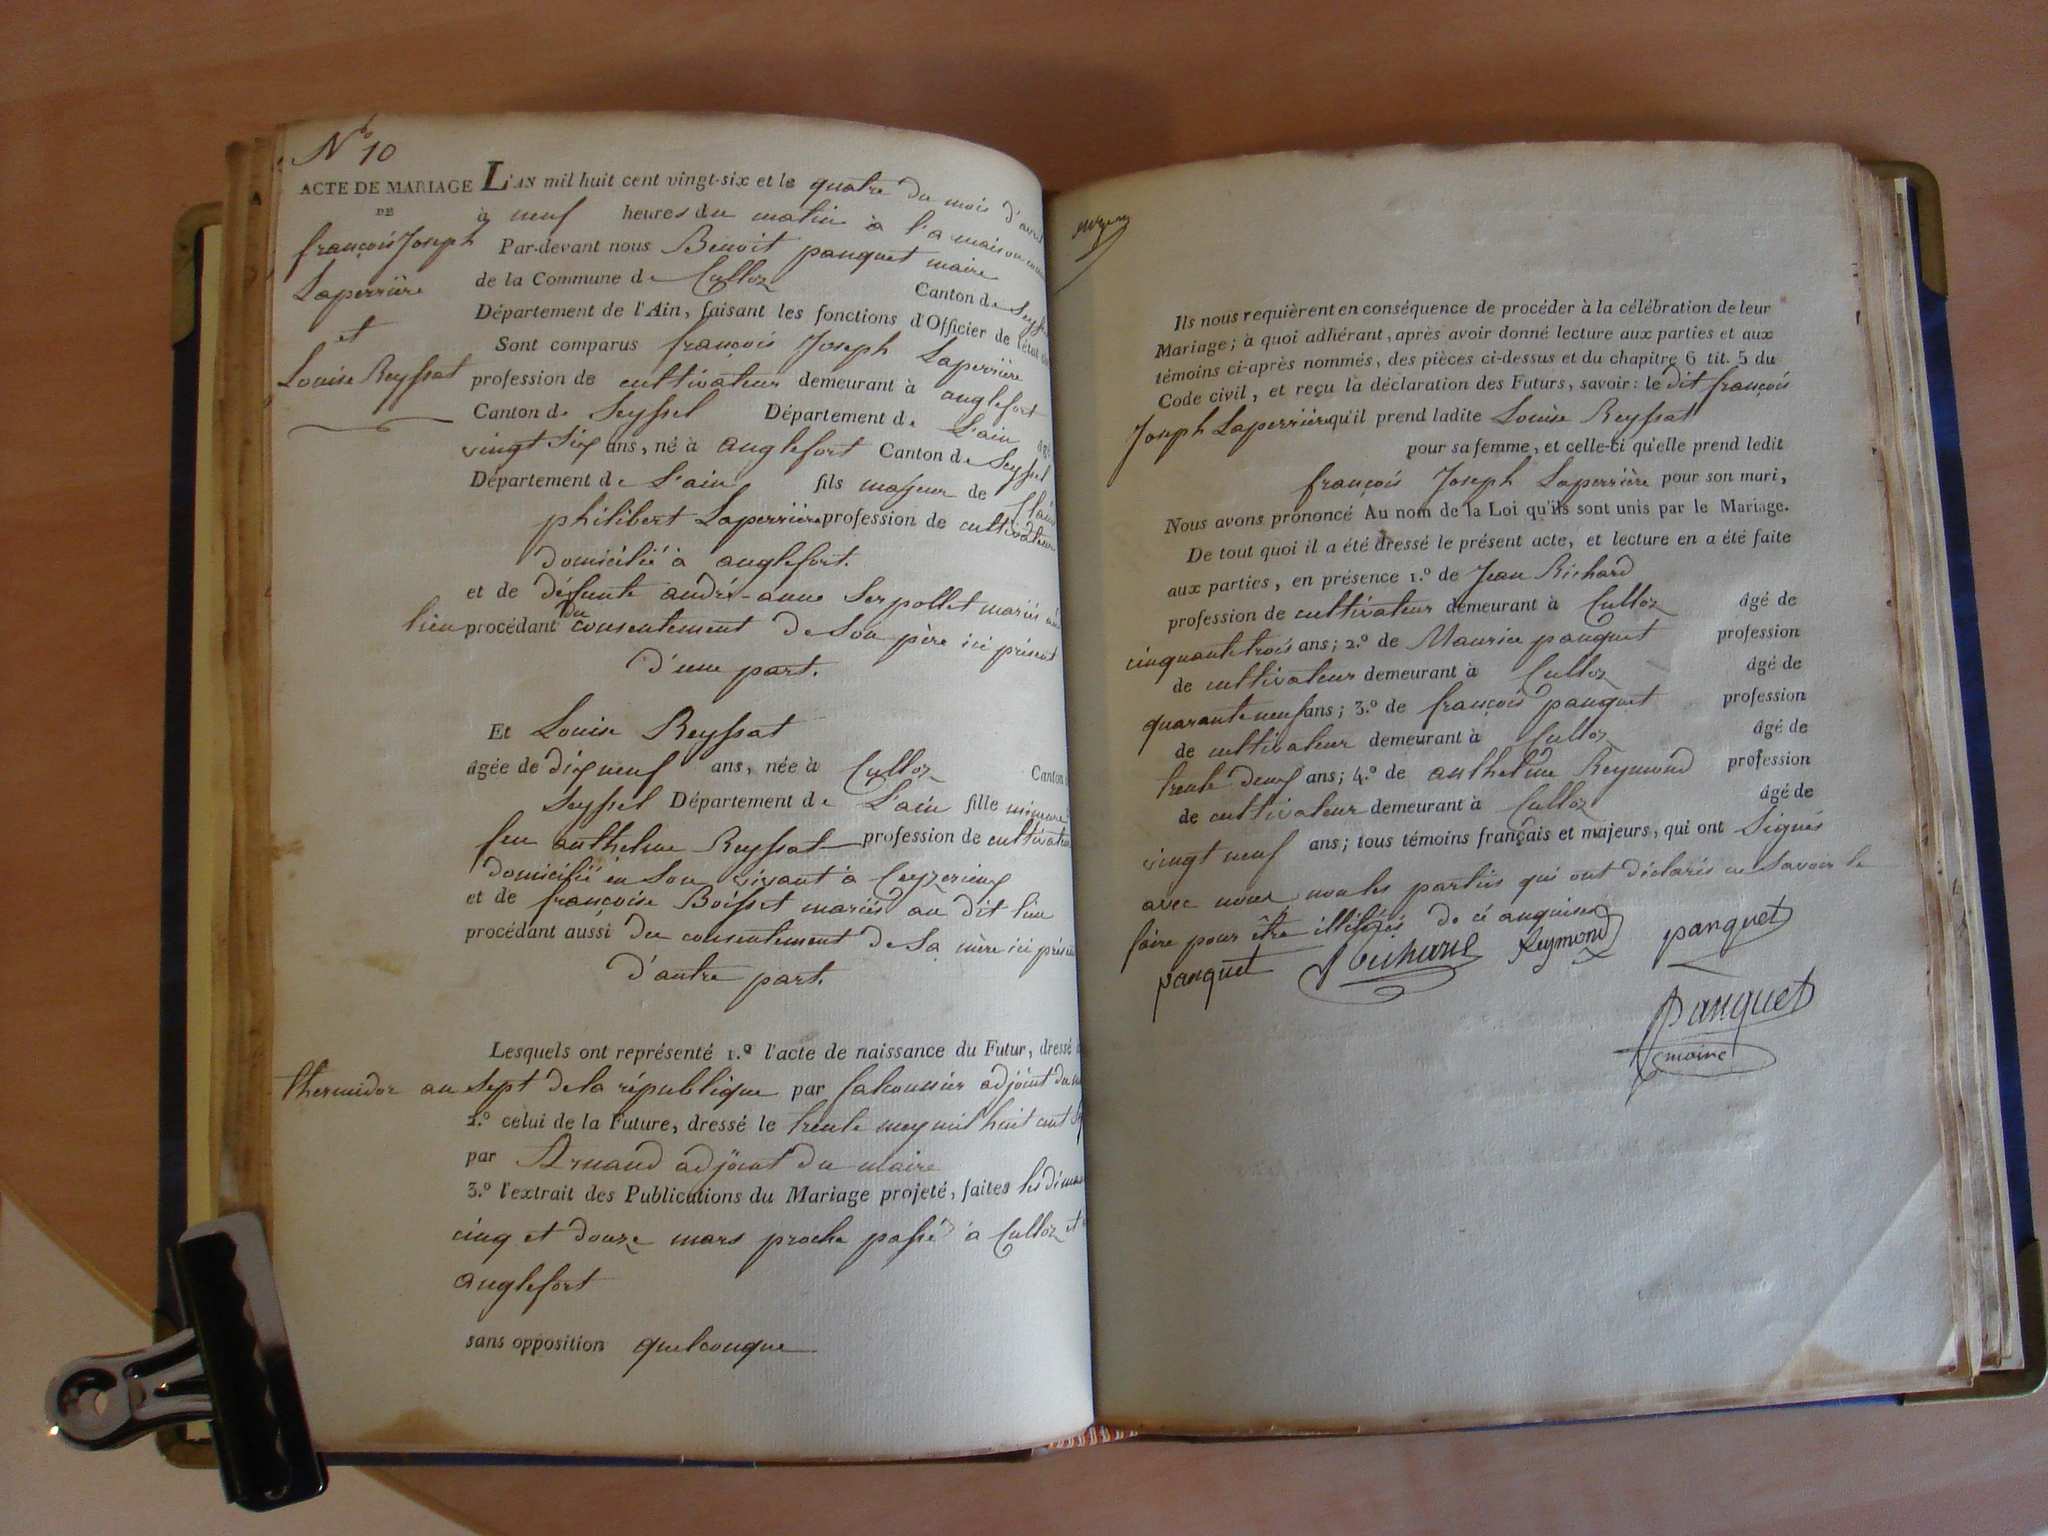 No 10
ACTE DE MARIAGE
DE
françois Joseph
Laperrière
et
Louise Reyssat
L'AN mil huit cent vingt-six et le quatre du mois d'avril
à neuf heures du matin à l'a maison
Par-devant nous Benoit panquet maire
de la Commune de Culloz Canton de Seyssel
Département de l'Ain, faisant les fonctions d'Officier de l'état
Sont comparus françois Joseph Laperrière
profession de cultivateur demeurant à anglefort
Canton de Seyssel Département de L'ain âgé
vingt Six ans, né à anglefort Canton de Seyssel
Département de L'ain fils majeur de
philibert Laperrière profession de cultivateur
domicilié à anglefort.
et de défunte andré-anne Serpollet mariés
lieu procédant du consentement de Son père ici présent
d'une part.
Et Louise Reyssat
âgée de dix neuf ans, née à Culloz Canton
Seyssel Département de L'ain fille mineure
feu anthelme Reyssat profession de cultivateur
domicilié en Son vivant à Ceyzerieux
et de françoise Boisset mariés au dit lieu
procédant aussi du consentement de Sa mère ici présente
d'autre part.
Lesquels ont représenté 1.º l'acte de naissance du Futur, dressé
thermidor an sept de la république par adjoint du
2.º celui de la Future, dressé le trente may mil huit cent
par Arnaud adjoint du maire
3.º l'extrait des Publications du Mariage projeté, faites les
cinq et douze mars proche passé à Culloz et
anglefort
sans opposition quelconque
Ils nous requièrent en conséquence de procéder à la célébration de leur
Mariage; à quoi adhérant, après avoir donné lecture aux parties et aux
témoins ci-après nommés, des pièces ci-dessus et du chapitre 6 tit. 5 du
Code civil, et reçu la déclaration des Futurs, savoir: le dit françois
Joseph Laperrière qu'il prend ladite Louise Reyssat
pour sa femme, et celle-ci qu'elle prend ledit
françois Joseph Laperrière pour son mari,
Nous avons prononcé Au nom de la Loi qu'ils sont unis par le Mariage.
De tout quoi il a été dressé le présent acte, et lecture en a été faite
aux parties, en présence 1.º de Jean Richard
profession de cultivateur demeurant à Culloz âgé de
cinquante trois ans; 2.º de Maurice panquet profession
de cultivateur demeurant à Culloz âgé de
quarante neuf ans; 3.º de françois panquet profession
de cultivateur demeurant à Culloz âgé de
trente deux ans; 4.º de anthelme Reymond profession
de cultivateur demeurant à Culloz âgé de
vingt neuf ans; tous témoins français et majeurs, qui ont Signés
avec nous non les parties qui ont déclarés ne Savoir le
faire pour être illitérés de ce anquises
panquet Richard Reymond panquet
panquet
maire